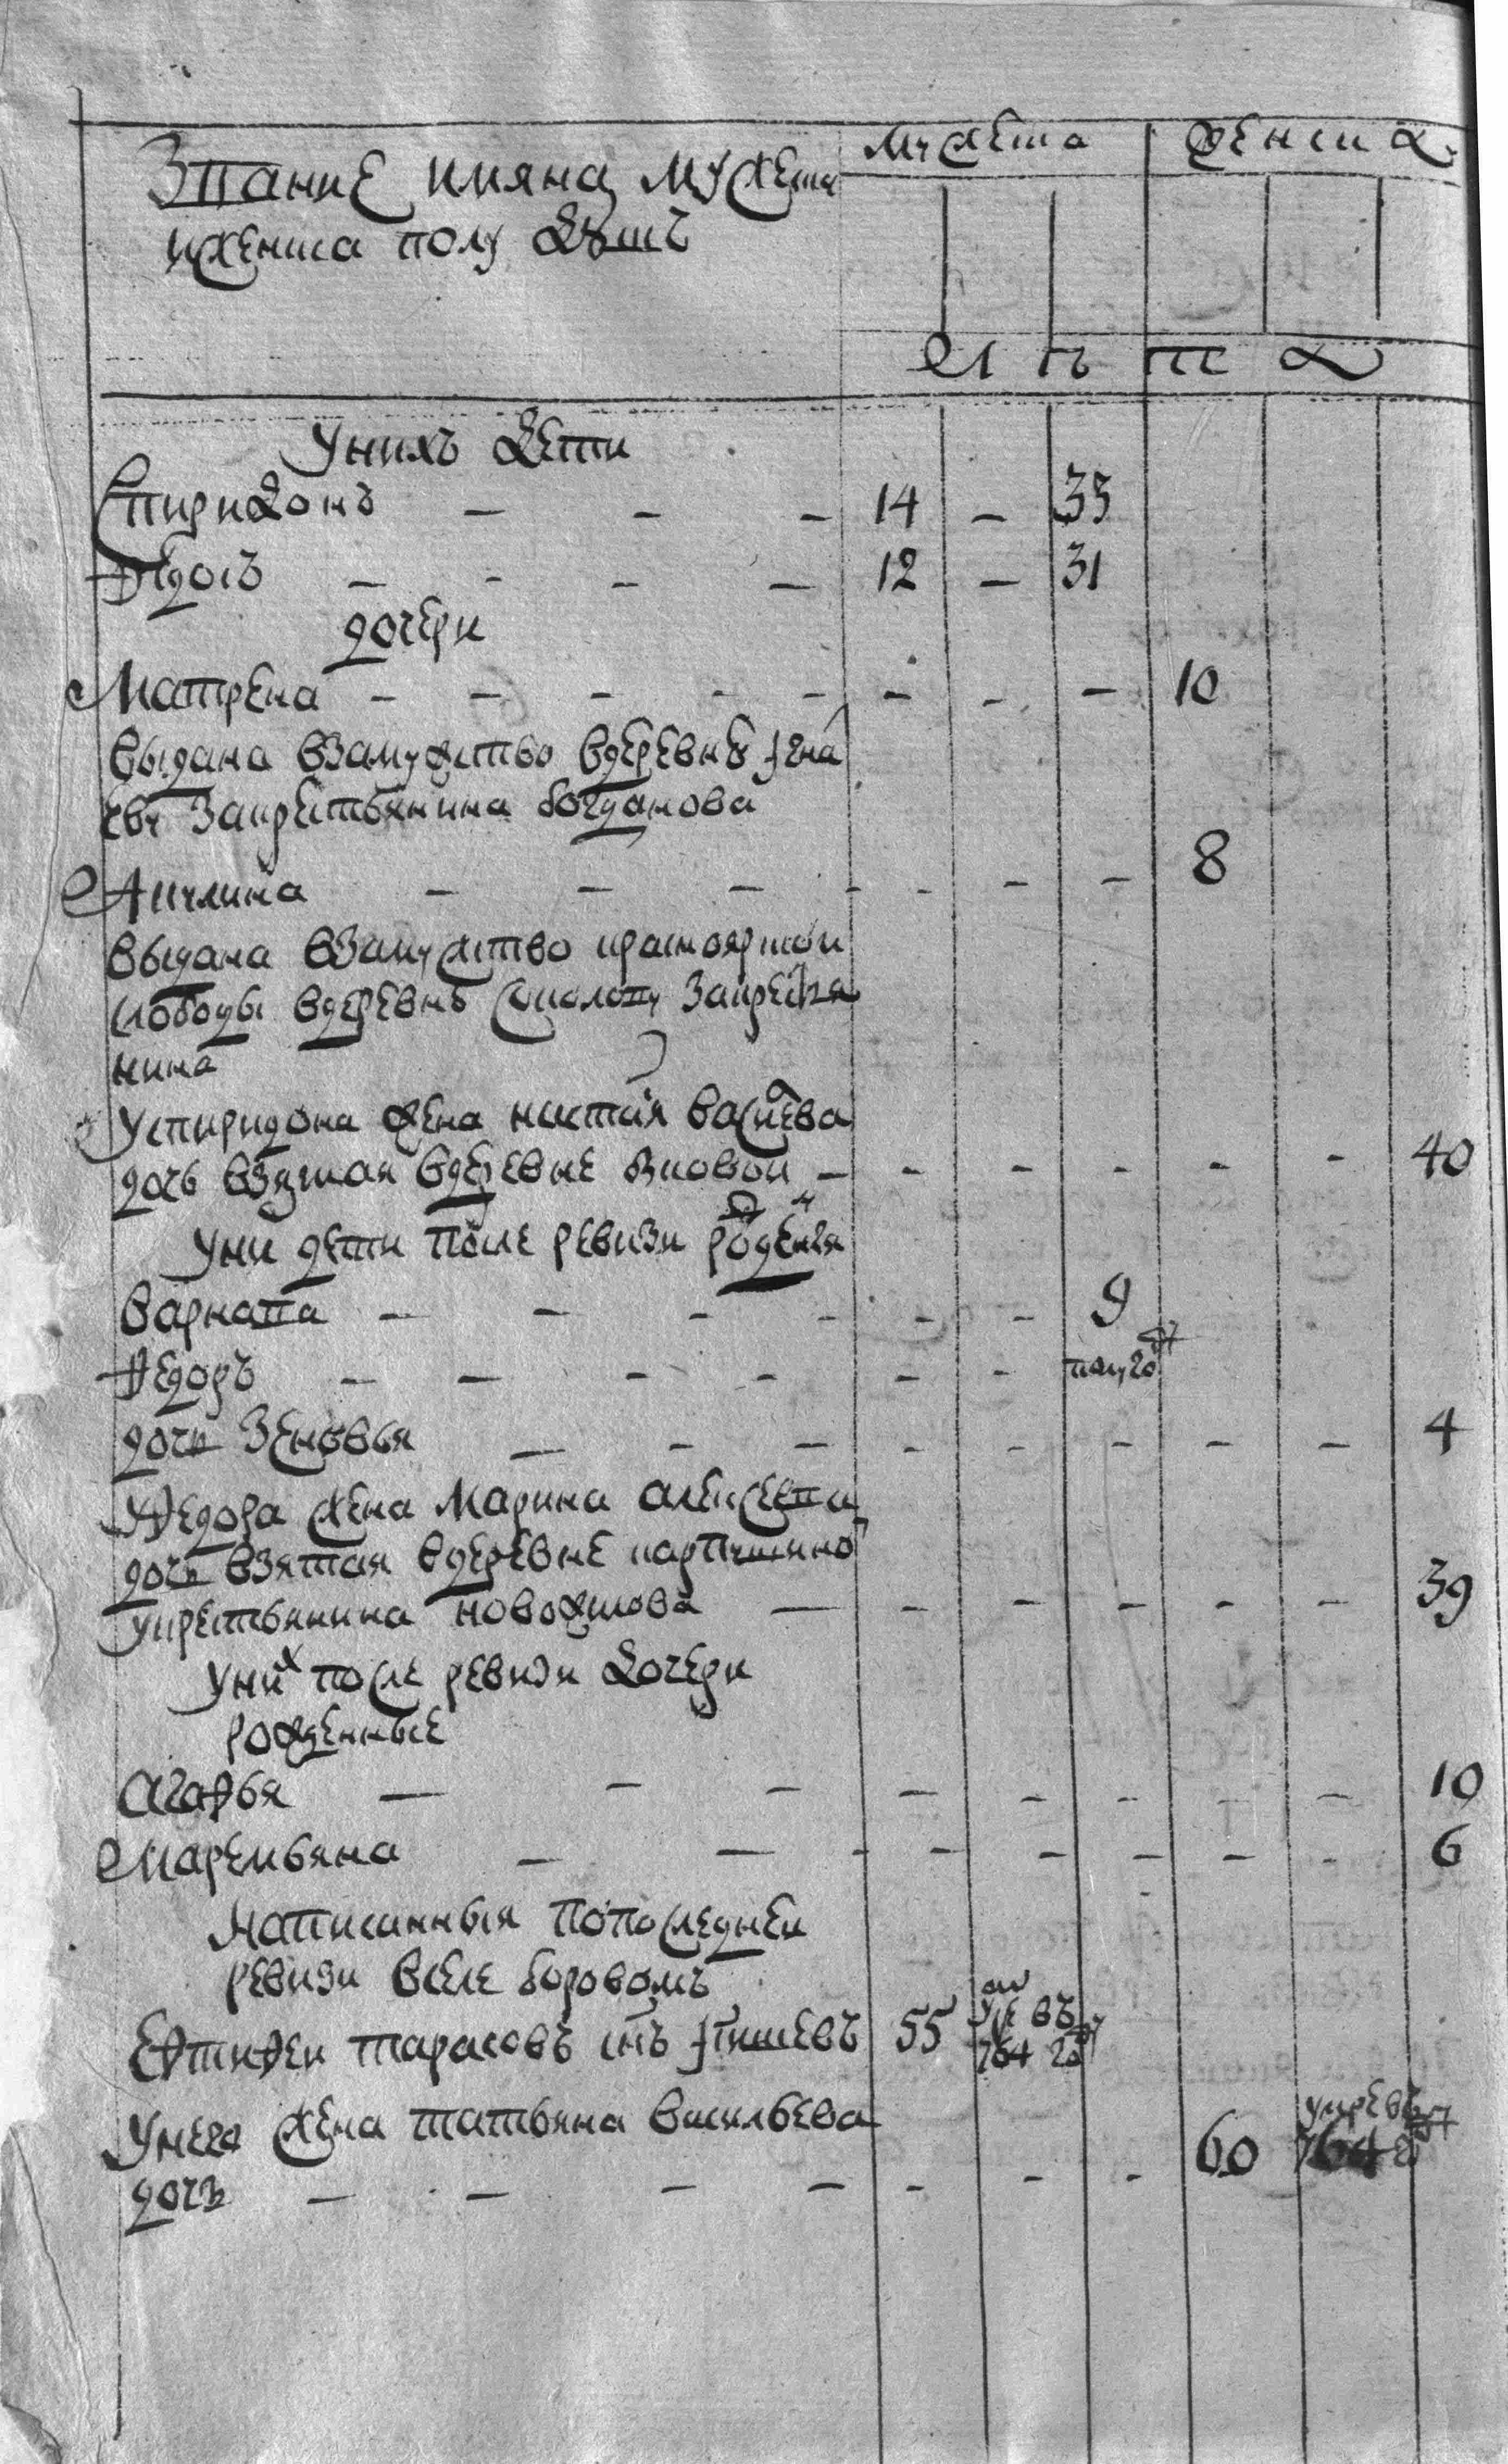 Звание имяна мужеска мужеска женска
и женска полу душъ
У нихъ дети
Спиридонъ - - - 14 - 35
Федоръ - - - - 12 - 31
дочери
Матрена - - - - - - - - 10
выдана взамужство в деревню
еву за крестьянина Богданова
Акулина - - - - - - - 8
выдана взамужство красноярской
слободы в деревню Соколову за крестья
нина
У Спиридона жена Настасья Васильева
дочь взятая в деревне - - - - - - 40
У них дети после ревизи рожденыя
Варнава - - - - - - 9
Федоръ - - - - - - полугоду
дочь Зеновья - - - - - - - - 4
У Федора жена Марина Алексеева
дочь взятая в деревне
у крестьянина - - - - - - 39
У них после ревизи дочери
рожденные
Агафья - - - - - - - - 10
Маремьяна - - - - - - - - 6
Написанныя по последней
ревизи в селе Боровомъ
Ефтифей Тарасовъ снъ 55 уме въ 764 году
У него жена Татьяна Васильева
дочь - - - - - - - 60 умре въ 764 году